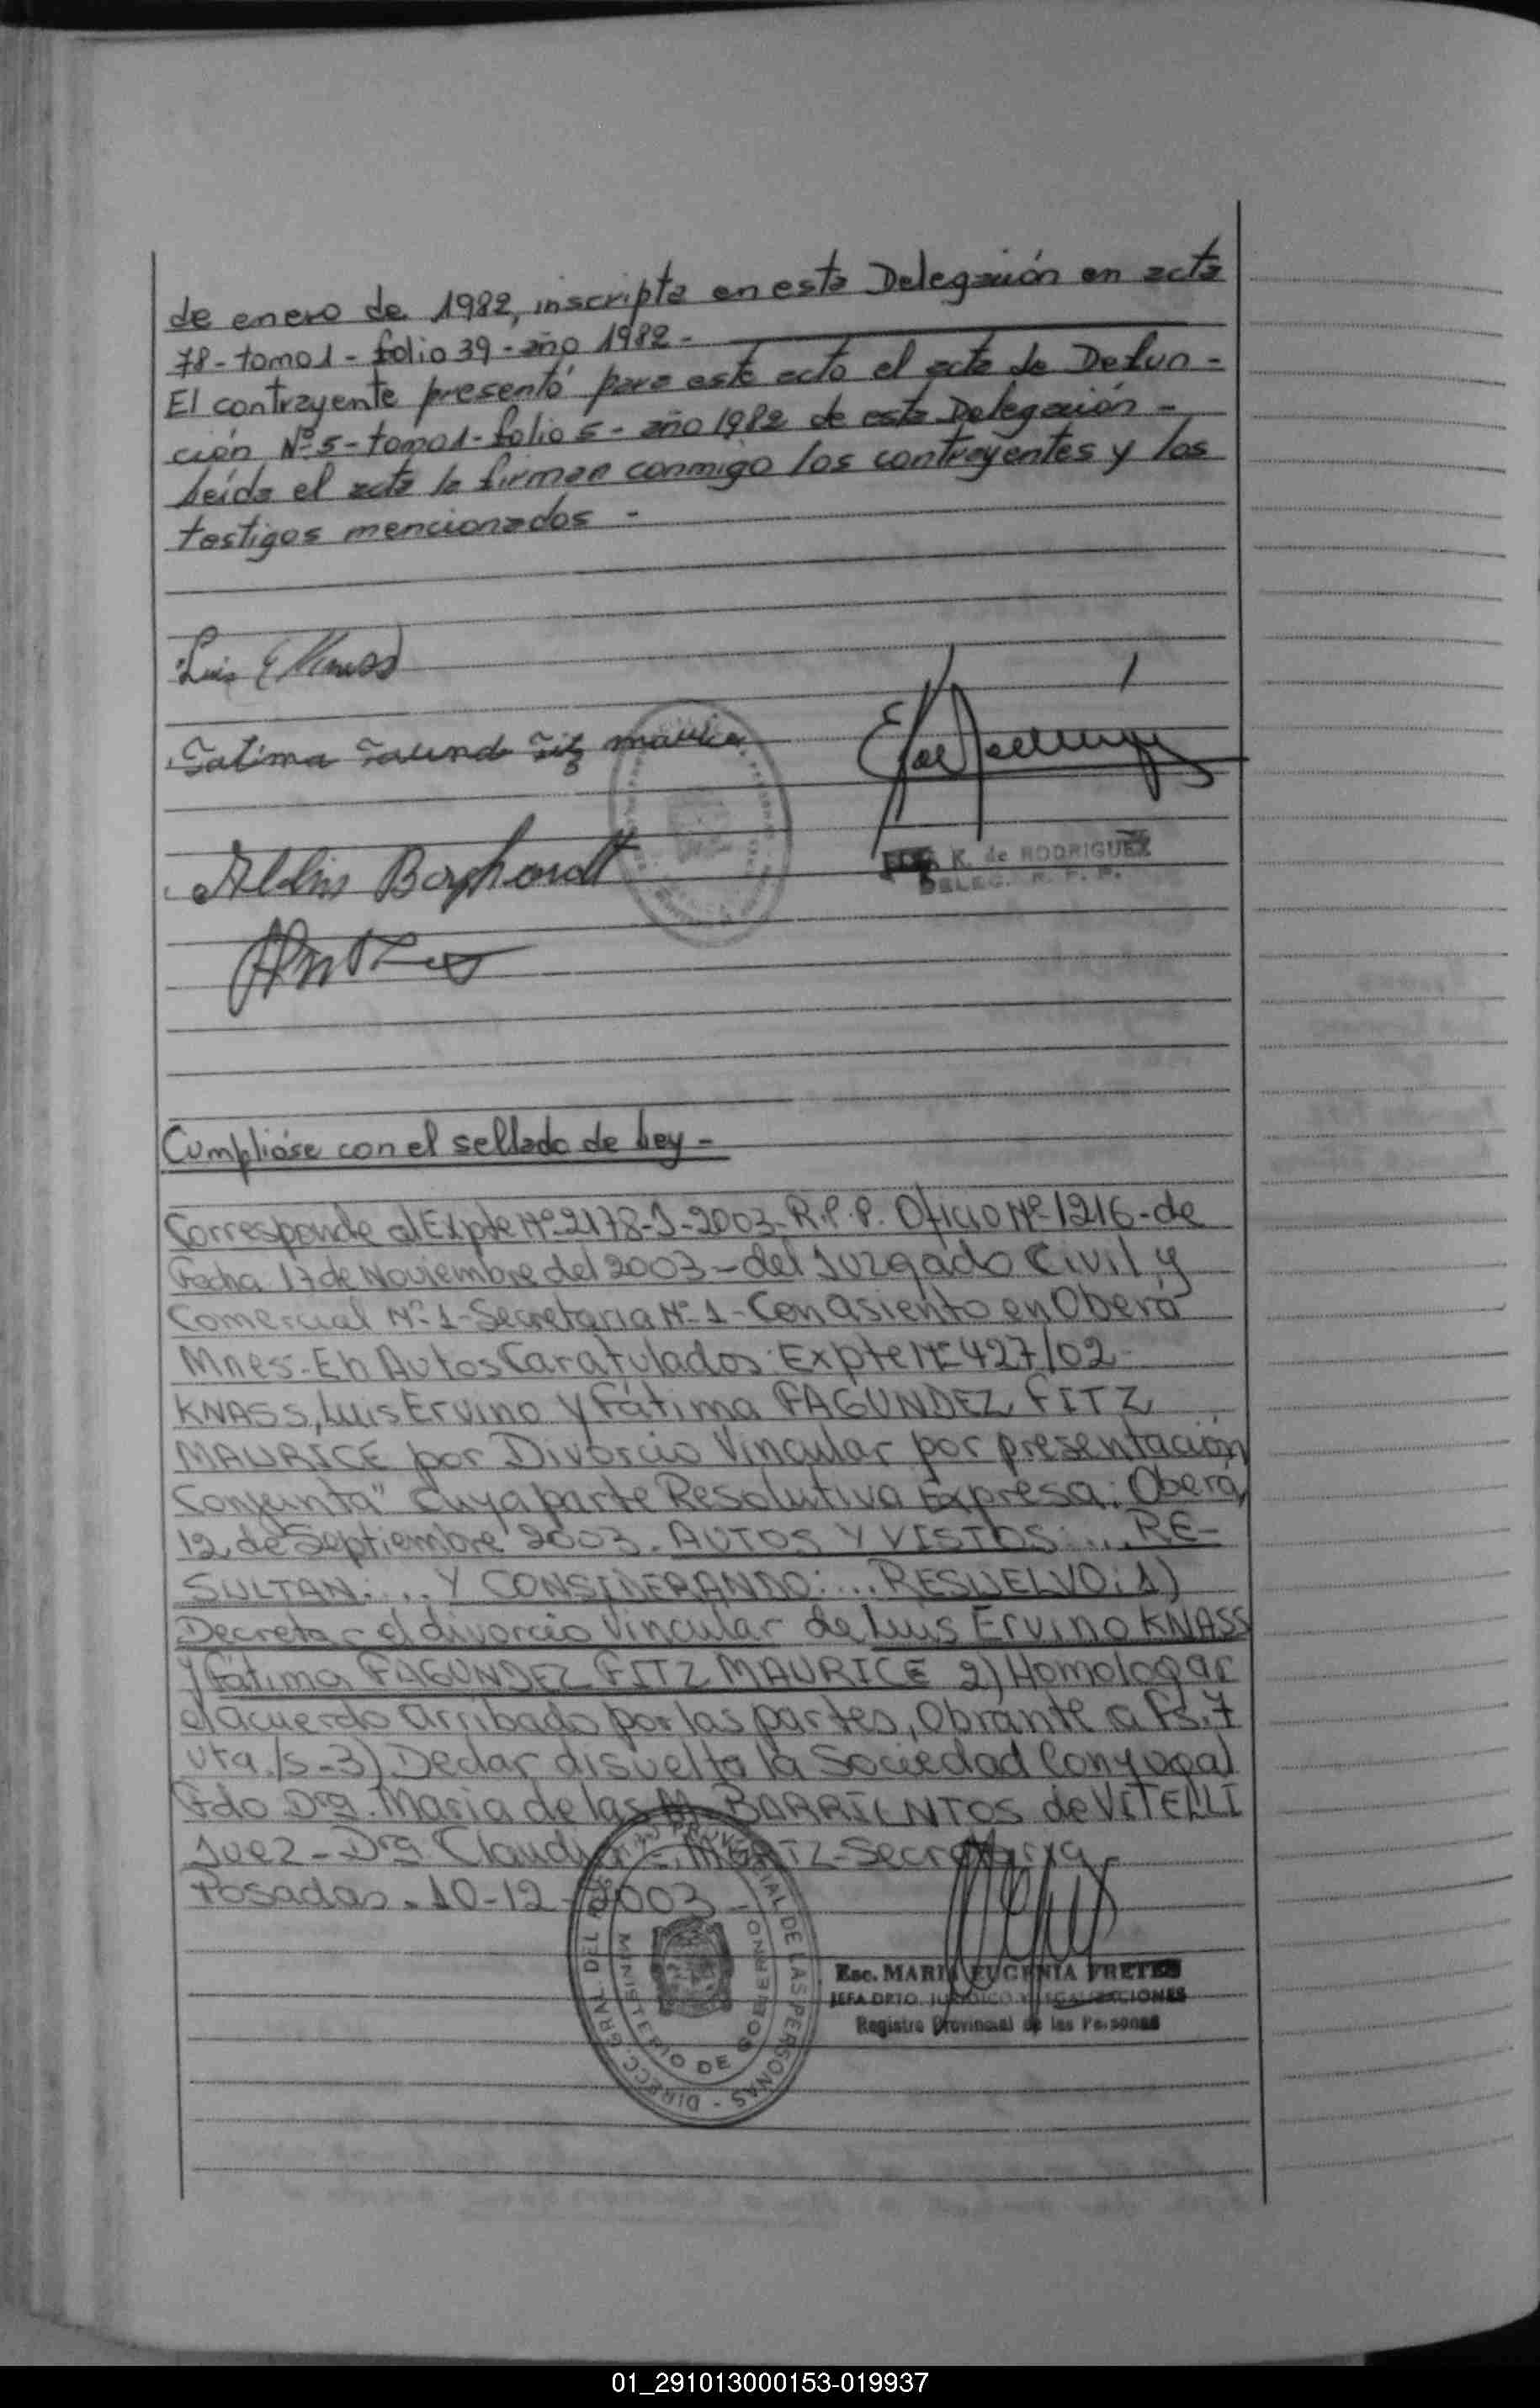 de enero de 1982, inscripta en esta Delegación en acta
78 - tomo 1 - folio 39 - año 1982 -
El contrayente presentó para este acto el acta de Defun-
ción Nº 5 - tomo 1 - folio 5 - año 1982 de esta Delegación -
Leída el acta la firman conmigo los contrayentes y los
testigos mencionados -
Luis E Knass
Fatima Fitz maurice
Borchardt
K. de RODRIGUEZ
DELEG. R. P. P.
Cumplióse con el sellado de Ley -
Corresponde al Expte Nº 2178-J-2003- R.P.P. Oficio Nº 1216-de
Fecha 17 de Noviembre del 2003 - del Juzgado Civil y
Comercial Nº 1 - Secretaria Nº 1 - Con asiento en Oberá
Mnes - En Autos Caratulados: Expte Nº 427/02
KNASS, Luis Ervino y Fátima FAGUNDEZ FITZ
MAURICE por Divorcio Vincular por presentación
Conjunta" Cuya parte Resolutiva Expresa: Oberá,
12 de Septiembre 2003. AUTOS Y VISTOS: ... RE-
SULTAN: ... Y CONSIDERANDO: ... RESUELVO: 1)
Decretar el divorcio Vincular de Luis Ervino KNASS
y Fátima FAGUNDEZ FITZ MAURICE 2) Homologar
el acuerdo arribado por las partes, Obrante a fs. 7
vta./s - 3) Declar disuelta la Sociedad Conyugal
Fdo Dra. Maria de las M. BARRIENTOS de VITELLI
Juez - Dra Claudia - Secretaria -
Posadas - 10-12-2003
DIRECC. GRAL. DEL PROVINCIAL DE LAS PERSONAS
MINISTERIO DE GOBIERNO
Esc. MARIA EUGENIA FRETES
JEFA DPTO. JURIDICO Y LEGALIZACIONES
Registro Provincial de las Personas
01_291013000153-019937